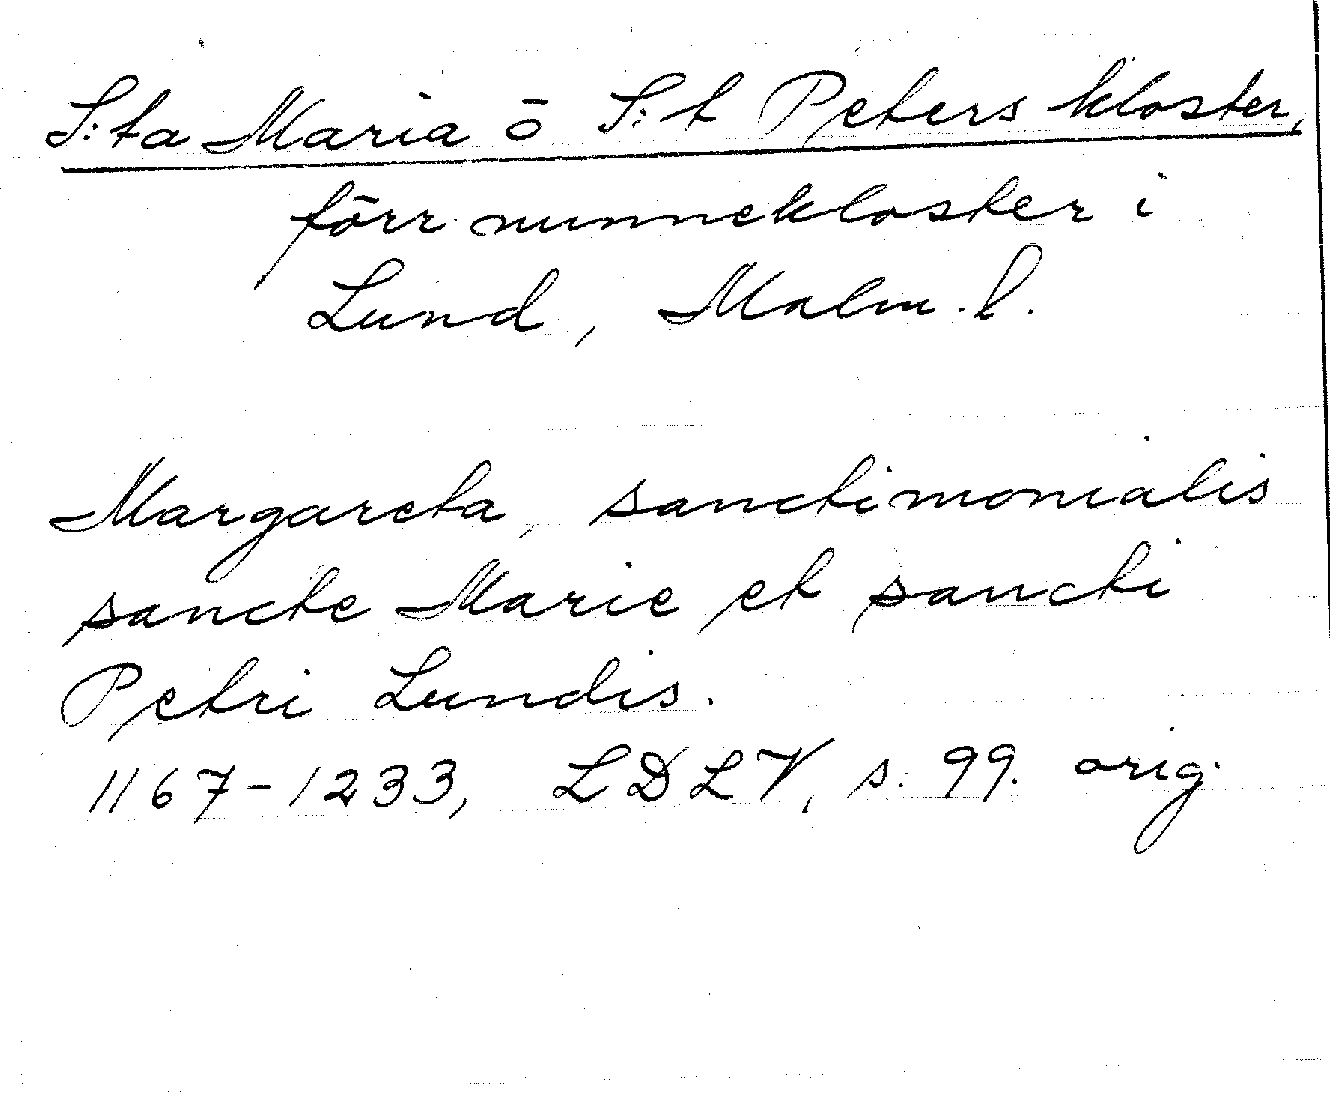 S:ta Maria o S:t Peters kloster,
förr nunnekloster i
Lund, Malm.l.
Margareta, sanctimonialis
sancte Marie et sancti
Petri Lundis.
1167-1233, LDLV, s. 99. orig.